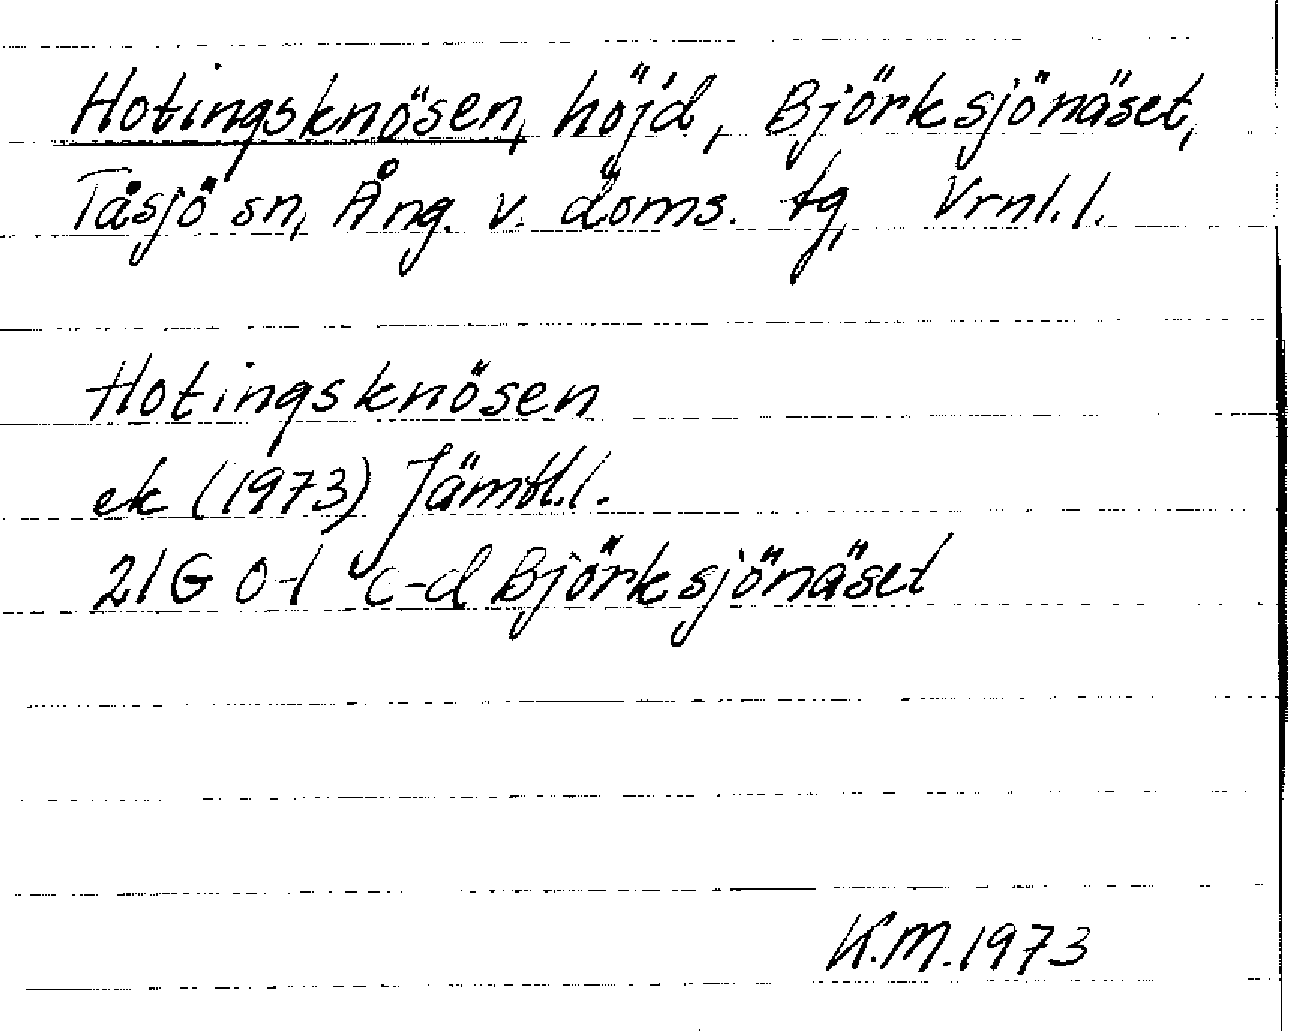 Hotingsknösen, höjd, Björksjönäset,
Tåsjö sn, Ång. v. doms. tg, Vrnl.l.
Hotingsknösen
ek (1973) Jämtl.l.
21G 0-1 c-d Björksjönäset
K.M.1973